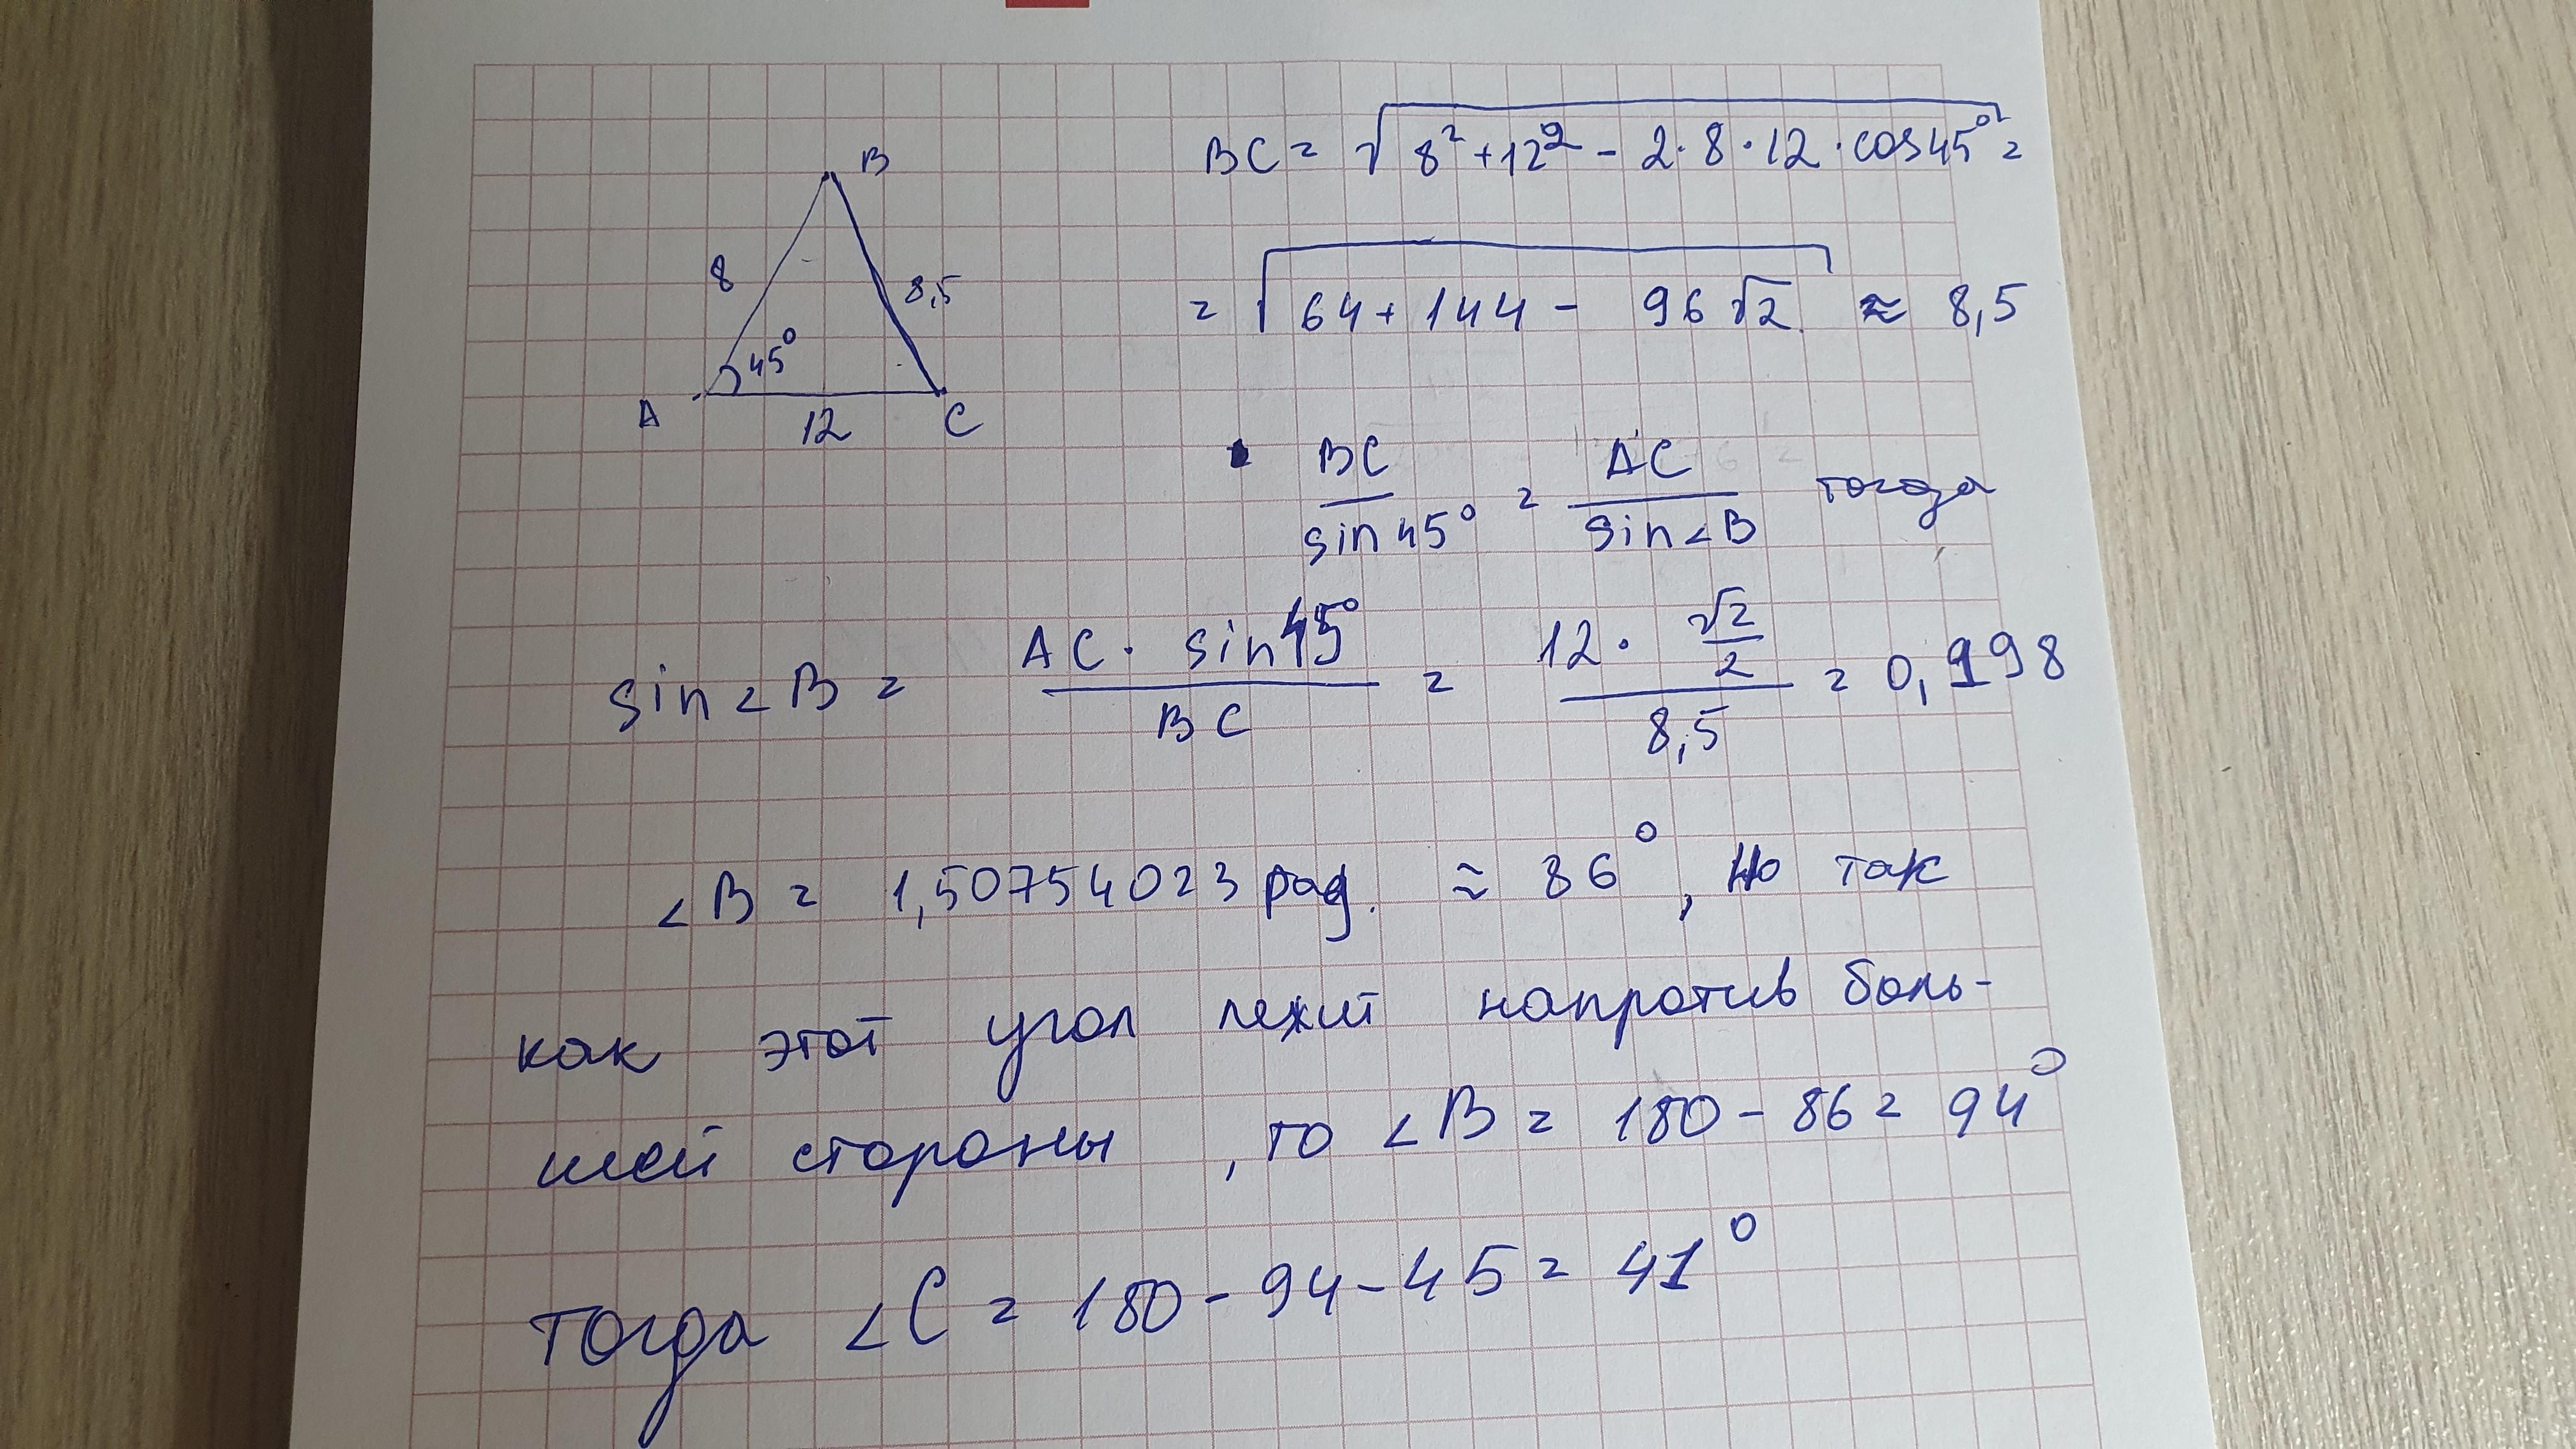 BC = √(8² + 12² - 2·8·12·cos45°) =
B
8
8,5
= √(64 + 144 - 96√2) ≈ 8,5
45°
A
12
C
BC/sin45° = AC/sin∠B тогда
sin∠B = (AC · sin45°)/BC = (12 · √2/2)/8,5 = 0,998
∠B = 1,50754023 рад. ≈ 86°, но так
как этот угол лежит напротив боль-
шей стороны, то ∠B = 180 - 86 = 94°
тогда ∠C = 180 - 94 - 45 = 41°